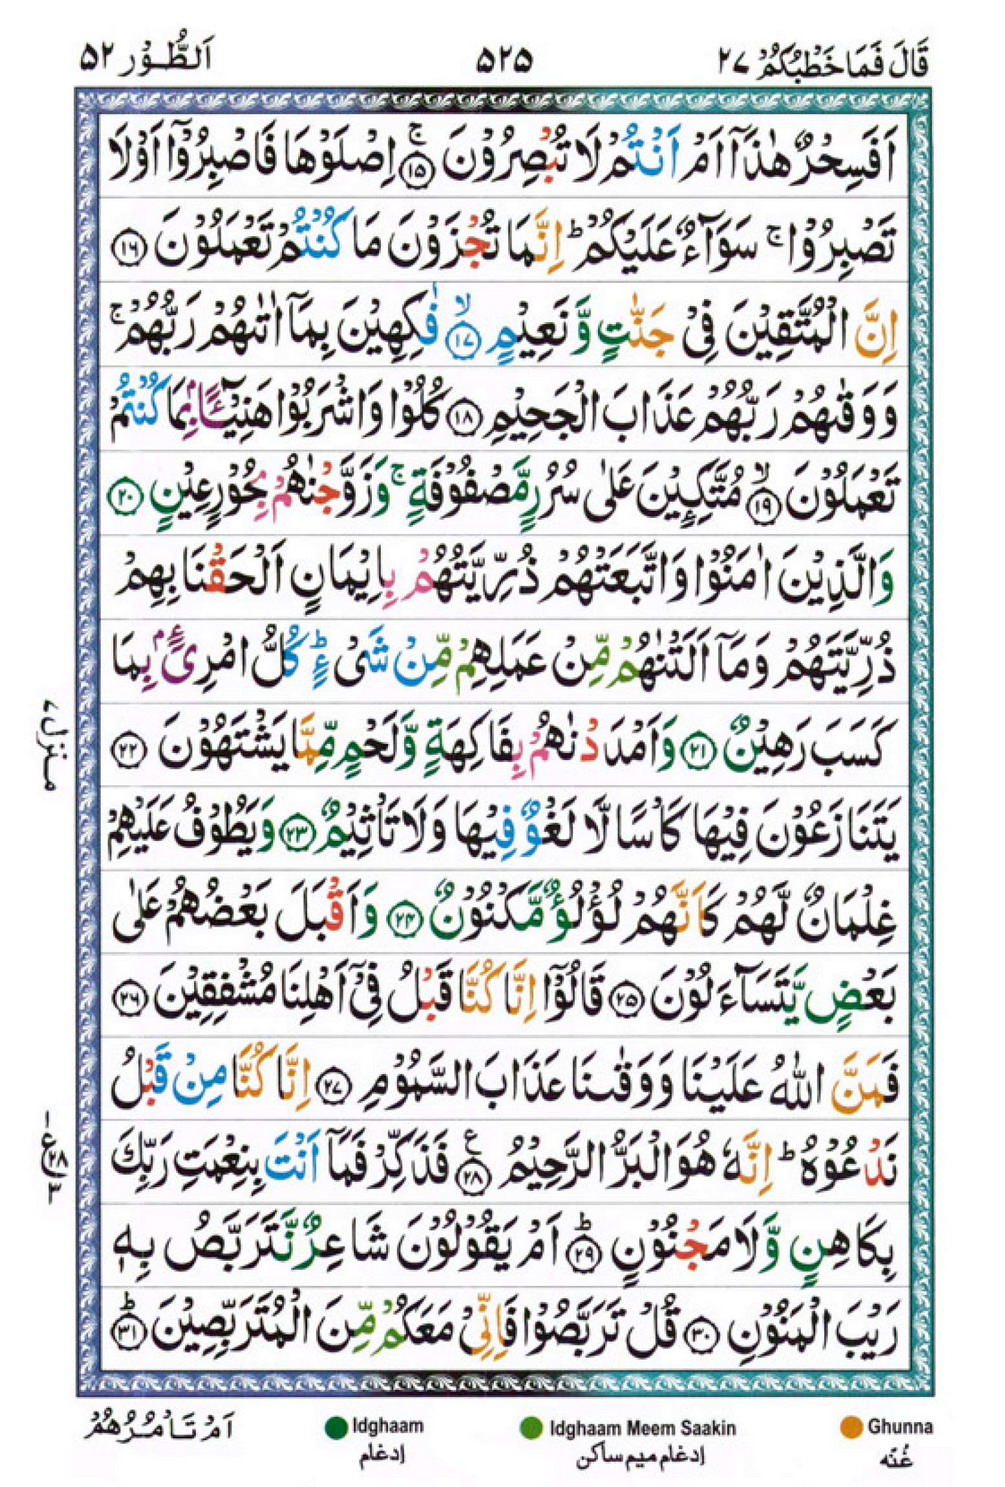 قَالَ فَمَا خَطْبُكُمْ ٢٧
٥٢٥
اَلطُّوْر ٥٢
اَفَسِحْرٌ هٰذَاۤ اَمْ اَنْتُمْ لَا تُبْصِرُوْنَ ۚ ۝١٥ اِصْلَوْهَا فَاصْبِرُوْۤا اَوْ لَا
تَصْبِرُوْا ۚ سَوَآءٌ عَلَيْكُمْ ؕ اِنَّمَا تُجْزَوْنَ مَا كُنْتُمْ تَعْمَلُوْنَ ۝١٦
اِنَّ الْمُتَّقِيْنَ فِيْ جَنّٰتٍ وَّنَعِيْمٍ ۙ ۝١٧ فٰكِهِيْنَ بِمَاۤ اٰتٰىهُمْ رَبُّهُمْ ۚ
وَوَقٰىهُمْ رَبُّهُمْ عَذَابَ الْجَحِيْمِ ۝١٨ كُلُوْا وَاشْرَبُوْا هَنِيْٓئًۢا بِمَا كُنْتُمْ
تَعْمَلُوْنَ ۙ ۝١٩ مُتَّكِـِٕيْنَ عَلٰى سُرُرٍ مَّصْفُوْفَةٍ ۚ وَزَوَّجْنٰهُمْ بِحُوْرٍ عِيْنٍ ۝٢٠
وَالَّذِيْنَ اٰمَنُوْا وَاتَّبَعَتْهُمْ ذُرِّيَّتُهُمْ بِاِيْمَانٍ اَلْحَقْنَا بِهِمْ
ذُرِّيَّتَهُمْ وَمَاۤ اَلَتْنٰهُمْ مِّنْ عَمَلِهِمْ مِّنْ شَيْءٍ ؕ كُلُّ امْرِئٍۢ بِمَا
كَسَبَ رَهِيْنٌ ۝٢١ وَاَمْدَدْنٰهُمْ بِفَاكِهَةٍ وَّلَحْمٍ مِّمَّا يَشْتَهُوْنَ ۝٢٢
يَتَنَازَعُوْنَ فِيْهَا كَاْسًا لَّا لَغْوٌ فِيْهَا وَلَا تَاْثِيْمٌ ۝٢٣ وَيَطُوْفُ عَلَيْهِمْ
غِلْمَانٌ لَّهُمْ كَاَنَّهُمْ لُؤْلُؤٌ مَّكْنُوْنٌ ۝٢٤ وَاَقْبَلَ بَعْضُهُمْ عَلٰى
بَعْضٍ يَّتَسَآءَلُوْنَ ۝٢٥ قَالُوْۤا اِنَّا كُنَّا قَبْلُ فِيْۤ اَهْلِنَا مُشْفِقِيْنَ ۝٢٦
فَمَنَّ اللّٰهُ عَلَيْنَا وَوَقٰىنَا عَذَابَ السَّمُوْمِ ۝٢٧ اِنَّا كُنَّا مِنْ قَبْلُ
نَدْعُوْهُ ؕ اِنَّهٗ هُوَ الْبَرُّ الرَّحِيْمُ ۝٢٨ ع فَذَكِّرْ فَمَاۤ اَنْتَ بِنِعْمَتِ رَبِّكَ
بِكَاهِنٍ وَّلَا مَجْنُوْنٍ ؕ ۝٢٩ اَمْ يَقُوْلُوْنَ شَاعِرٌ نَّتَرَبَّصُ بِهٖ
رَيْبَ الْمَنُوْنِ ۝٣٠ قُلْ تَرَبَّصُوْا فَاِنِّيْ مَعَكُمْ مِّنَ الْمُتَرَبِّصِيْنَ ؕ ۝٣١
منزل ٧
١ ع ٢٨ ٣
اَمْ تَاْمُرُهُمْ
Idghaam
إدغام
Idghaam Meem Saakin
إدغام ميم ساكن
Ghunna
غُنّه